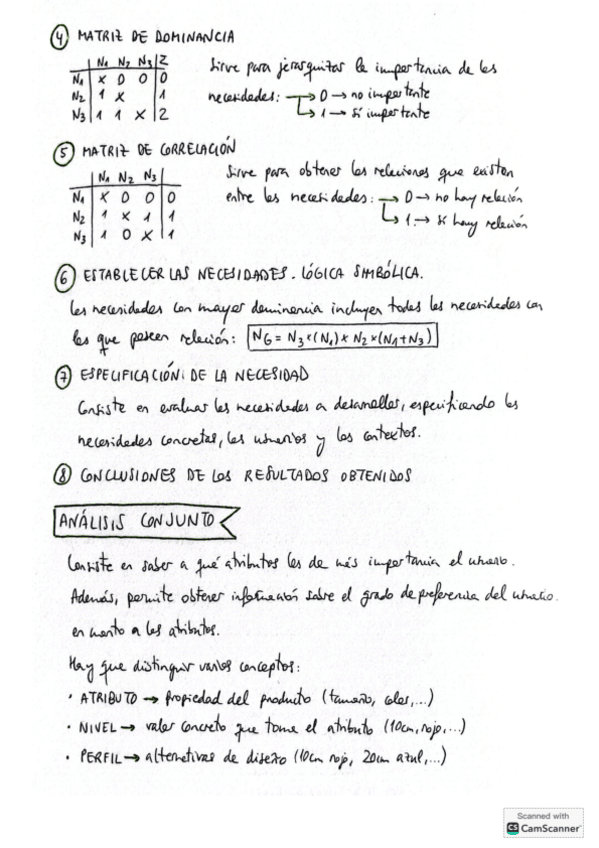 ④ MATRIZ DE DOMINANCIA
| N1 N2 N3 | Σ
N1 | X 0 0 | 0
N2 | 1 X | 1
N3 | 1 1 X | 2
Sirve para jerarquizar la importancia de las
necesidades: → 0 → no importante
↳ 1 → sí importante
⑤ MATRIZ DE CORRELACIÓN
| N1 N2 N3 |
N1 | X 0 0 | 0
N2 | 1 X 1 | 1
N3 | 1 0 X | 1
Sirve para obtener las relaciones que existen
entre las necesidades: → 0 → no hay relación
↳ 1 → sí hay relación
⑥ ESTABLECER LAS NECESIDADES. LÓGICA SIMBÓLICA.
Las necesidades con mayor dominancia incluyen todas las necesidades con
las que poseen relación: NG = N3×(N1)×N2×(N1+N3)
⑦ ESPECIFICACIÓN DE LA NECESIDAD
Consiste en evaluar las necesidades a desarrollar, especificando las
necesidades concretas, los usuarios y los contextos.
⑧ CONCLUSIONES DE LOS RESULTADOS OBTENIDOS
ANÁLISIS CONJUNTO
Consiste en saber a qué atributos les da más importancia el usuario.
Además, permite obtener información sobre el grado de preferencia del usuario.
en cuanto a los atributos.
Hay que distinguir varios conceptos:
· ATRIBUTO → Propiedad del producto (tamaño, color,...)
· NIVEL → valor concreto que toma el atributo (10cm, rojo,...)
· PERFIL → alternativas de diseño (10cm rojo, 20cm azul,...)
Scanned with
CS CamScanner